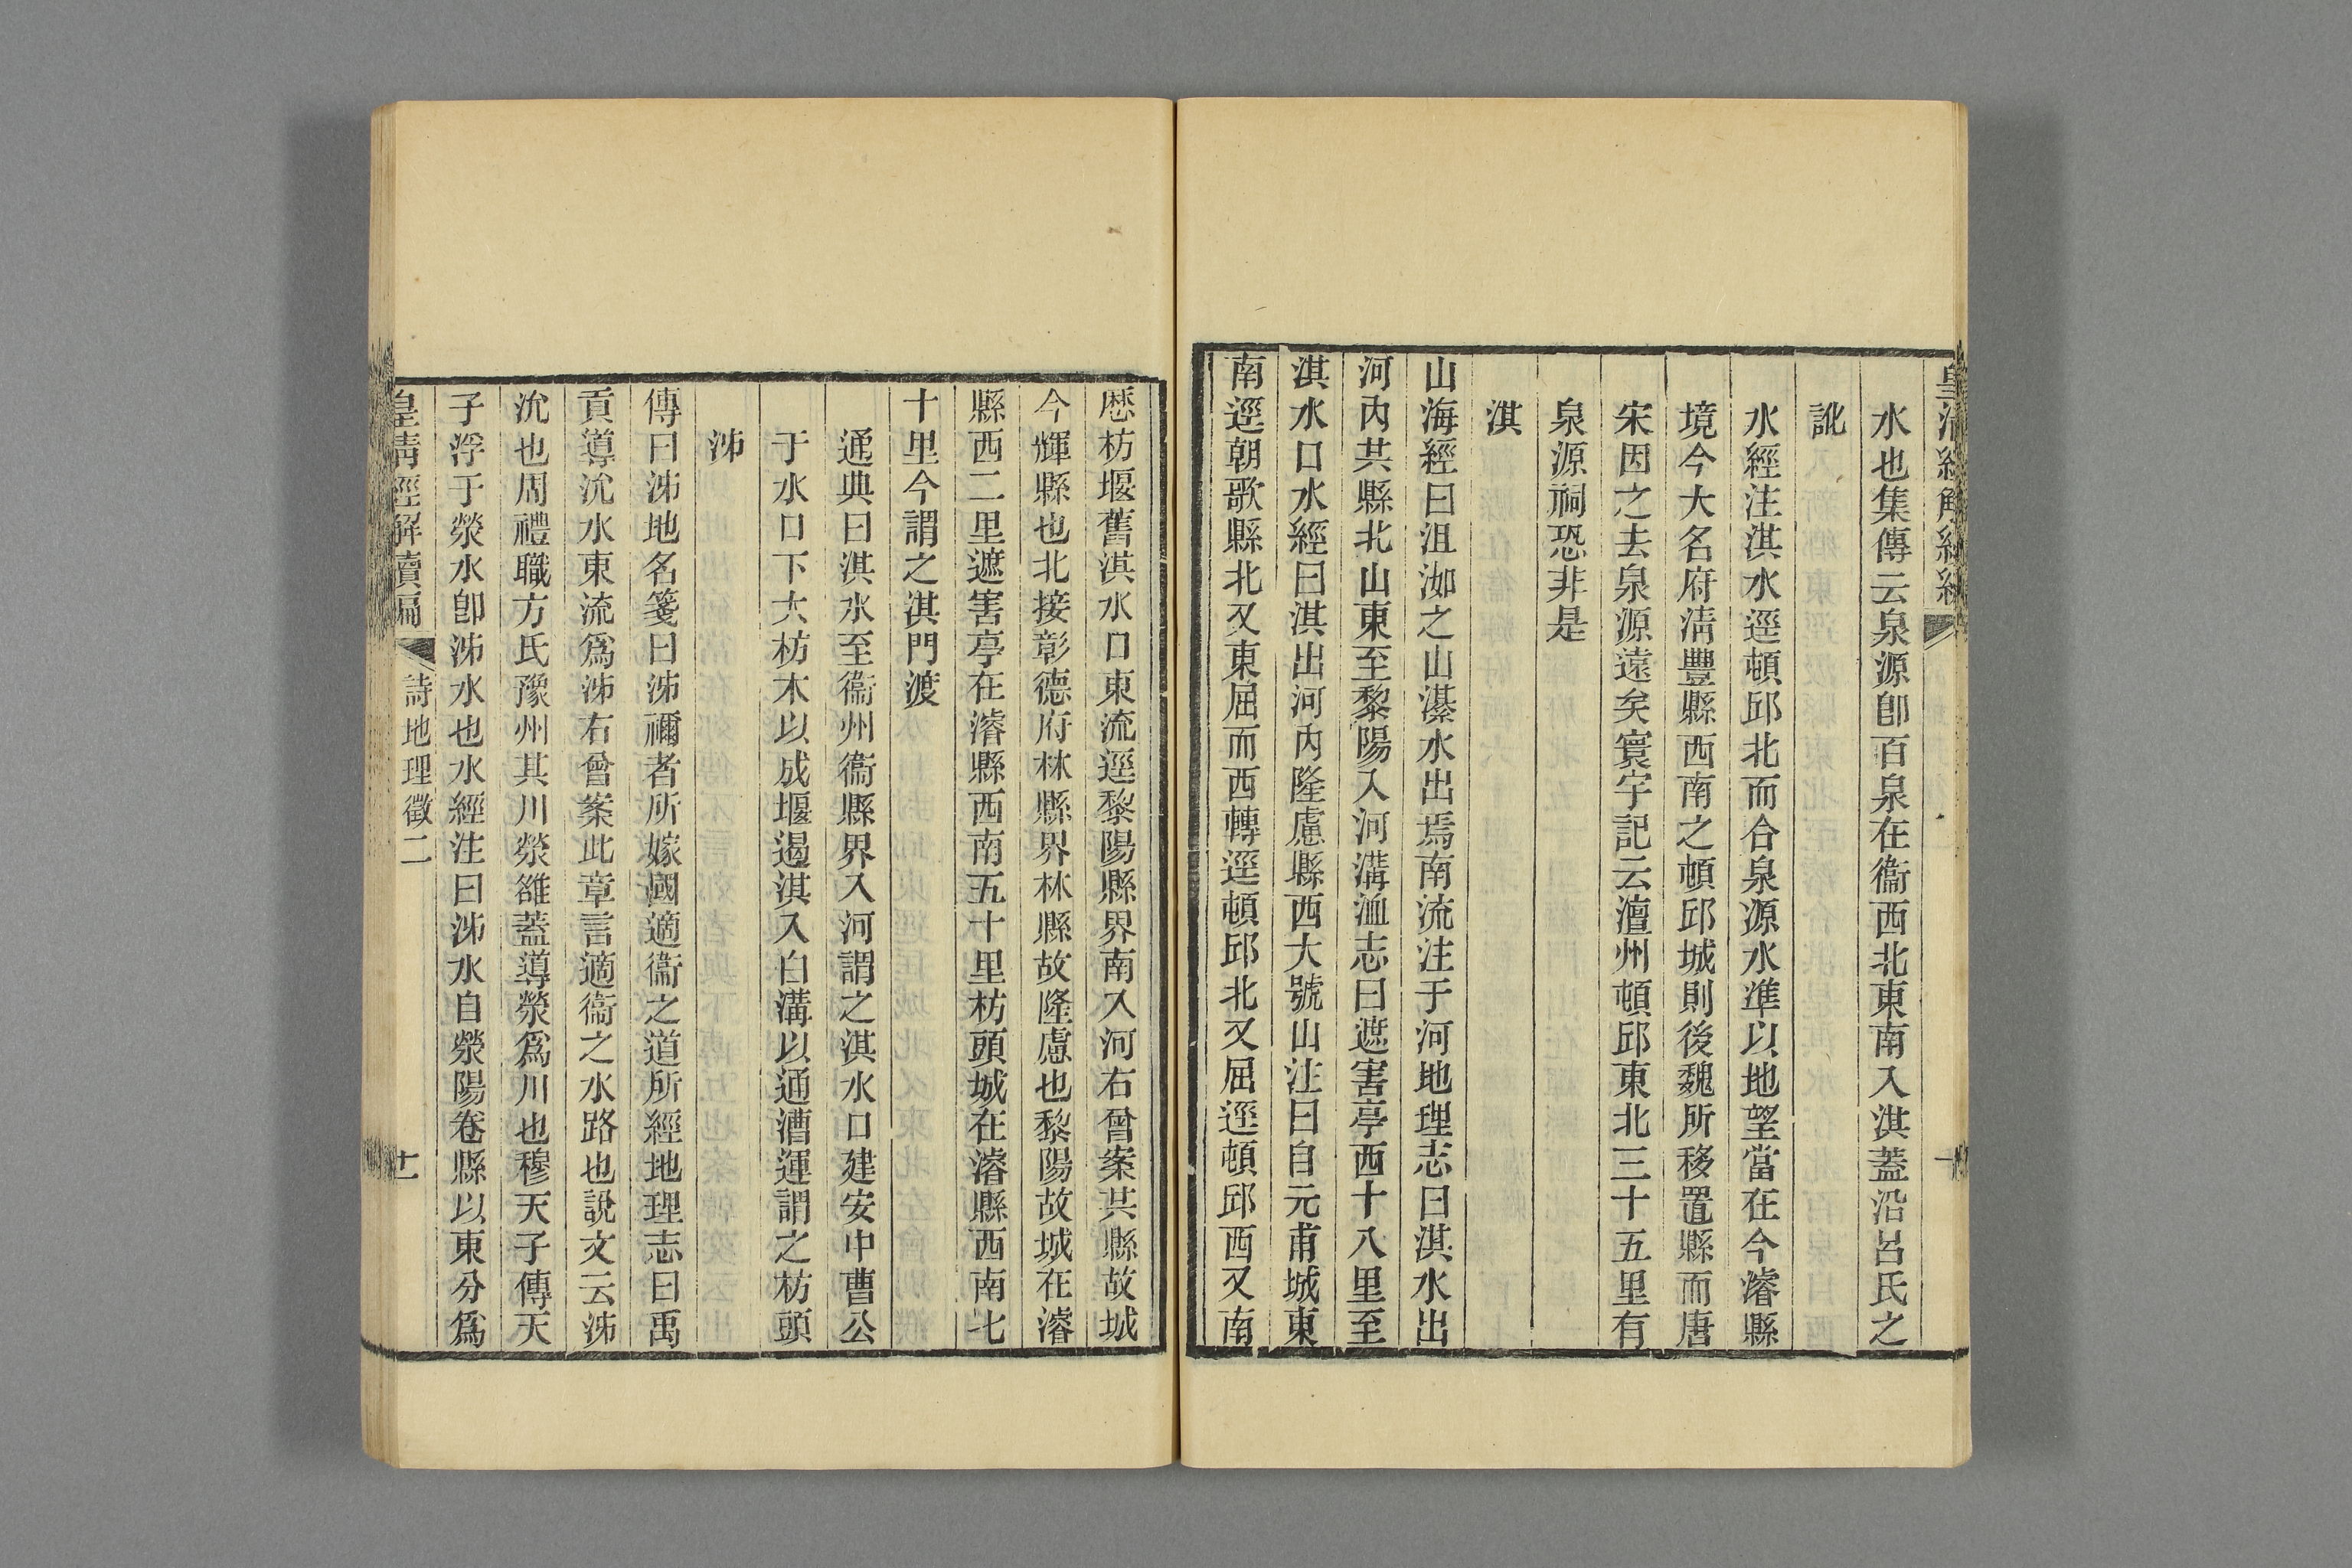 水也集傳云泉源卽百泉在衞西北東南入淇蓋沿呂氏之
訛
水經注淇水逕頓邱北而合泉源水準以地望當在今濬縣
境今大名府淸豐縣西南之頓邱城則後魏所移置縣而唐
宋因之去泉源遠矣寰宇記云澶州頓邱東北三十五里有
泉源祠恐非是
淇
山海經曰沮洳之山濝水出焉南流注于河地理志曰淇水出
河內共縣北山東至黎陽入河溝洫志曰遮害亭西十八里至
淇水口水經曰淇出河內隆慮縣西大號山注曰自元甫城東
南逕朝歌縣北又東屈而西轉逕頓邱北又屈逕頓邱西又南
歷枋堰舊淇水口東流逕黎陽縣界南入河右曾案共縣故城
今輝縣也北接彰德府林縣界林縣故隆慮也黎陽故城在濬
縣西二里遮害亭在濬縣西南五十里枋頭城在濬縣西南七
十里今謂之淇門渡
通典曰淇水至衞州衞縣界入河謂之淇水口建安中曹公
于水口下大枋木以成堰遏淇入白溝以通漕運謂之枋頭
泲
傳曰泲地名箋曰泲禰者所嫁國適衞之道所經地理志曰禹
貢導沇水東流爲泲右曾案此章言適衞之水路也說文云泲
沇也周禮職方氏豫州其川滎雒蓋導滎爲川也穆天子傳天
子浮于滎水卽泲水也水經注曰泲水自滎陽卷縣以東分爲
皇淸經解續編
詩地理徵二
十一